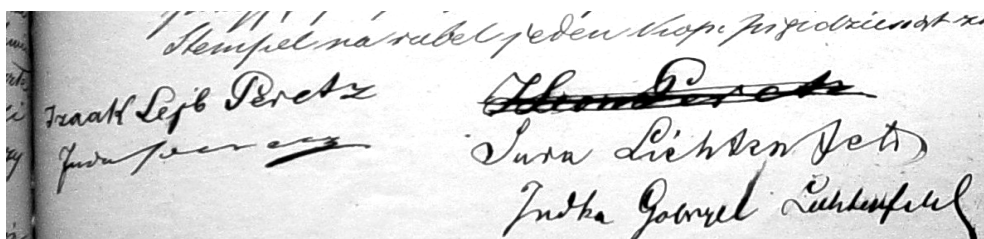 Stempel na rubel jeden kop. pięćdziesiąt
Izaak Lejb Peretz
Juda Perez
Sura Lichtenfeld
Judka Gabryel Lichtenfeld